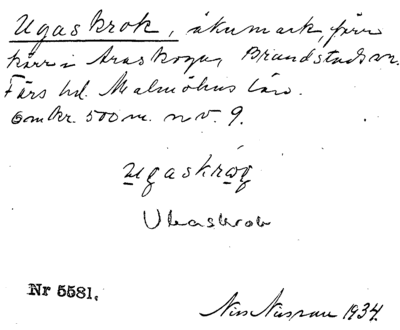 Ugaskrok, åkumark, förr
kärr i Araskoga, Brandstadsv.
Färs hd. Malmöhus län.
omkr. 500 m. n.v. 9.
ugaskråg
Ukaskrok
Nr 5581.
Nils Nilsson 1934.